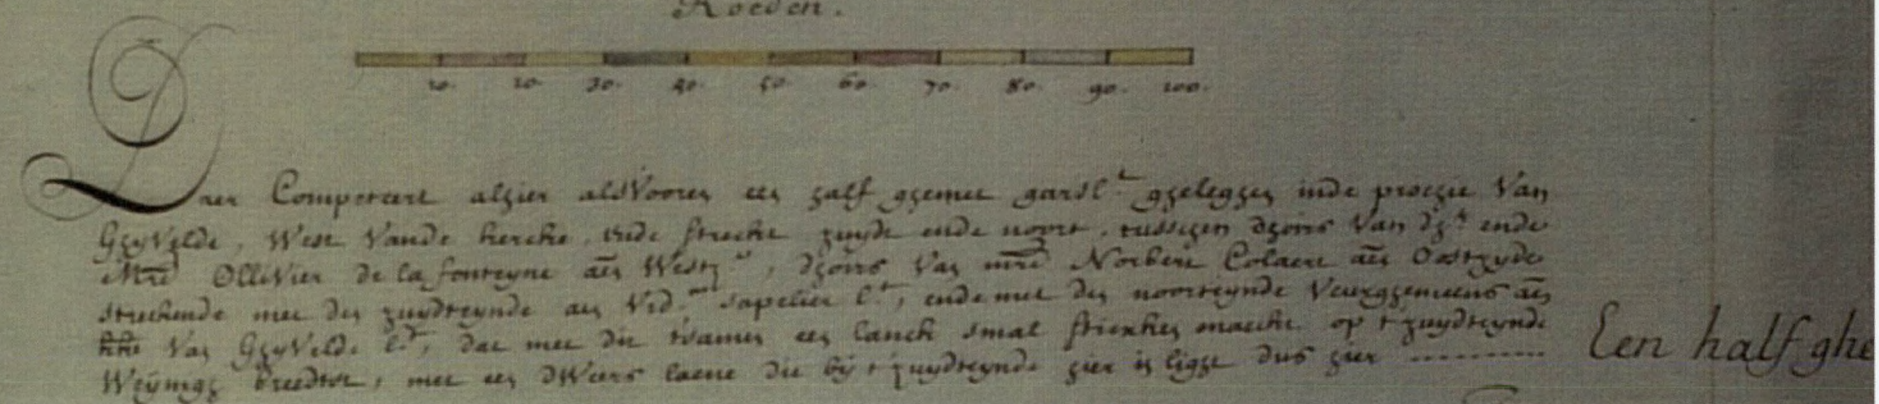 Roeden.
10. 20. 30. 40. 50. 60. 70. 80. 90. 100.
Daer Competeert alhier als Vooren een half ghemet garsl.t gheleghen inde prochie Van
GhyVelde, West Vande kercke, ende strecke zuydt ende noort, tusschen dhoirs Van dh.r ende
Mre OlliVier de la fonteyne aen Westz., dhoirs Van mre Norbert Colaert aen Oostzyde
streckende met den zuydteynde aen Vid. sapelier l.t, ende met den noorteynde aen
Van GhyVelde l.t, dat met die tsamen een lanck smal maeckt op t'zuydteynde
Weynigh breedte, met een dWers laene die by t'zuydteynde hier in light dus hier ...........
Een half ghe